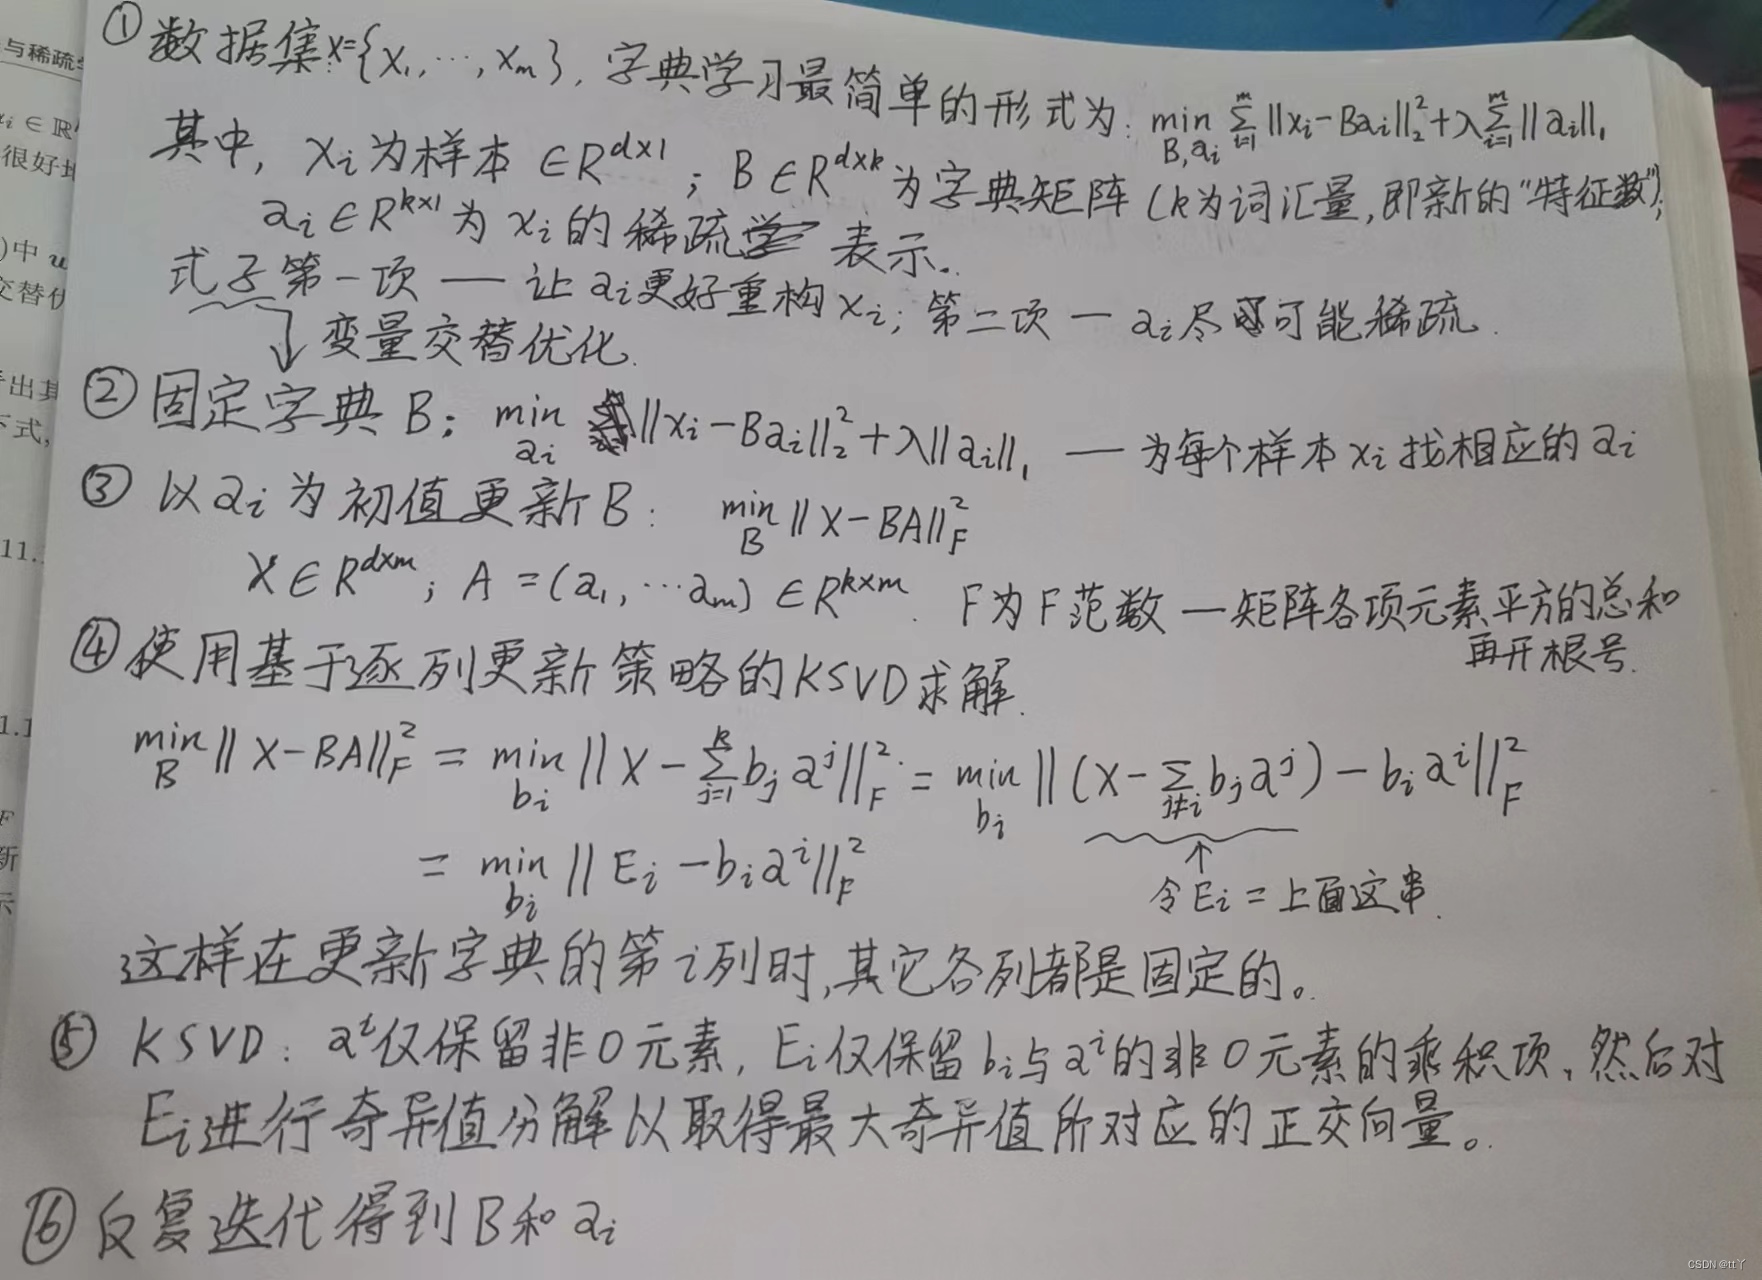 ① 数据集X={x₁,…,xₘ}, 字典学习最简单的形式为: min_{B,aᵢ} Σ_{i=1}^{m} ||xᵢ-Baᵢ||₂² + λ Σ_{i=1}^{m} ||aᵢ||₁
其中, xᵢ为样本 ∈R^{d×1}; B∈R^{d×k}为字典矩阵 (k为词汇量,即新的"特征数");
aᵢ∈R^{k×1}为xᵢ的稀疏表示。
式子第一项 — 让aᵢ更好重构xᵢ; 第二项 — aᵢ尽可能稀疏.
↓ 变量交替优化.
② 固定字典B: min_{aᵢ} ||xᵢ-Baᵢ||₂²+λ||aᵢ||₁ — 为每个样本xᵢ找相应的aᵢ
③ 以aᵢ为初值更新B: min_B ||X-BA||_F²
X∈R^{d×m}; A=(a₁,…aₘ)∈R^{k×m}. F为F范数 — 矩阵各项元素平方的总和
再开根号.
④ 使用基于逐列更新策略的KSVD求解.
min_B ||X-BA||_F² = min_{bᵢ} ||X-Σ_{j=1}^{k} bⱼaʲ||_F² = min_{bᵢ} ||(X-Σ_{j≠i} bⱼaʲ)-bᵢaⁱ||_F²
= min_{bᵢ} ||Eᵢ-bᵢaⁱ||_F²
↑
令Eᵢ=上面这串.
这样在更新字典的第i列时,其它各列都是固定的。
⑤ KSVD: aⁱ仅保留非0元素, Eᵢ仅保留bᵢ与aⁱ的非0元素的乘积项, 然后对
Eᵢ进行奇异值分解以取得最大奇异值所对应的正交向量。
⑥ 反复迭代得到B和aᵢ
与稀疏
xᵢ ∈ ℝ
很好地
)中 u
交替优
出其
下式,
11.
1.1
F
新
示
CSDN @tt丫